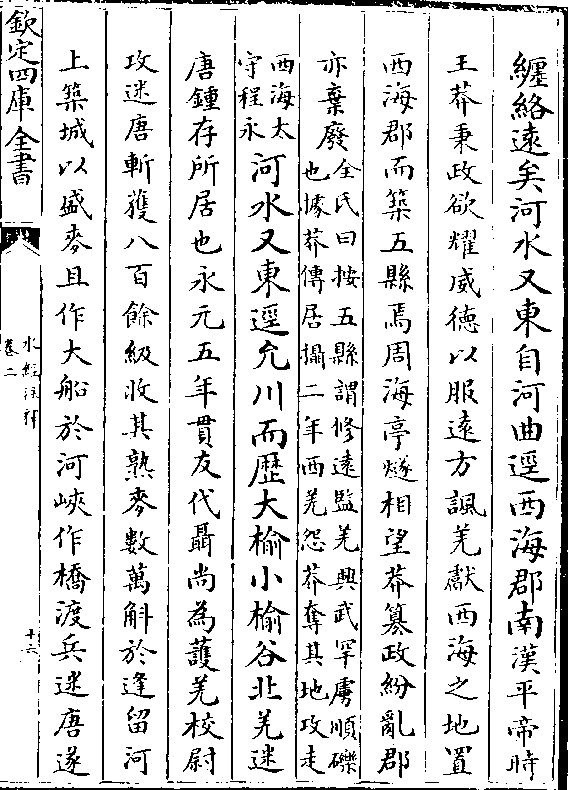 纏絡遠矣河水又東自河曲逕西海郡南漢平帝時
王莽秉政欲耀威德以服遠方諷羌獻西海之地置
西海郡而築五縣焉周海亭燧相望莽篡政紛亂郡
亦棄廢
全氏曰按五縣謂修遠監羌興武罕虜順礫
也據莽傳居攝二年西羌怨莽奪其地攻走
西海太
守程永
河水又東逕允川而歴大榆小榆谷北羌迷
唐鍾存所居也永元五年貫友代聶尚為護羌校尉
攻迷唐斬獲八百餘級收其熟麥數萬斛於逢留河
上築城以盛麥且作大船於河峽作橋渡兵迷唐遂
欽定四庫全書
水經注釋
卷二
十六